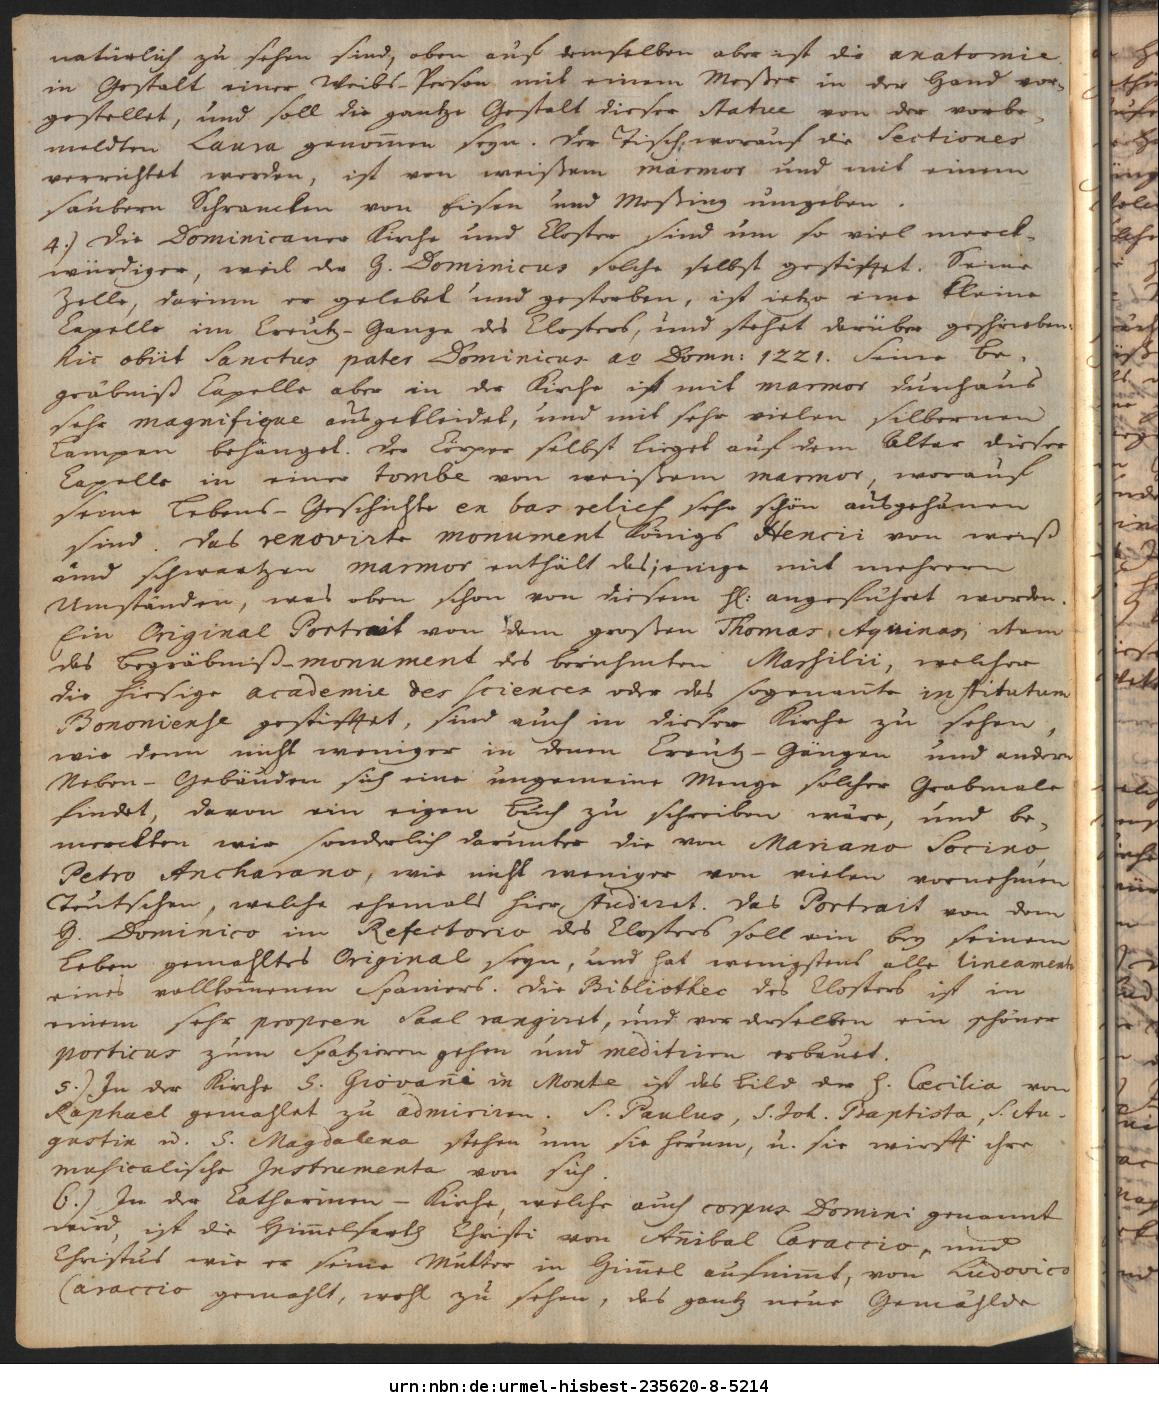 natürlich zu sehen sind, oben auf demselben aber ist die anatomie
in Gestalt einer Weibs-Person mit einem Meßer in der Hand vor-
gestellet, und soll die gantze Gestalt dieser statue von der vorbe-
meldten Laura genom̅en seyn. Der Tisch, worauf die Sectiones
verrichtet werden, ist von weißem marmor und mit einem
saubern Schrancken von Eisen und Meßing umgeben.
4.) Die Dominicaner Kirche und Closter sind um so viel merck-
würdiger, weil der H. Dominicus solche selbst gestifftet. Seine
Zelle, darinn er gelebet und gestorben, ist ietzo eine kleine
Capelle im Creutz-Gange des Closters, und stehet darüber geschrieben:
hic obiit Sanctus pater Dominicus ao Domn: 1221. Seine Be-
gräbniß Capelle aber in der Kirche ist mit marmor durchaus
sehr magnifique ausgekleidet, und mit sehr vielen silbernen
Lampen behänget. Der Cörper selbst lieget auf dem Altar dieser
Capelle in einer tombe von weißem marmor, worauf
seine Lebens-Geschichte en bas relief sehr schön ausgehauen
sind. Das renovirte monument Königs Hencii von weiß
und schwartzen marmor enthält dasjenige mit mehrern
Umständen, was oben schon von diesem angeführet worden.
Ein Original Portrait von dem großen Thomas Aquinas, item
das Begräbniß-monument des berühmten Marsilii, welcher
die hiesige academie des sciences oder das sogenan̅te institutum
Bononiense gestifftet, sind auch in dieser Kirche zu sehen,
wie denn nicht weniger in denen Creutz-Gängen und andern
Neben-Gebäuden sich eine ungemeine Menge solcher Grabmale
findet, davon ein eigen Buch zu schreiben wäre, und be-
merckten wir sonderlich darunter die von Mariano Socino,
Petro Ancharano, wie nicht weniger von vielen vornehmen
Teutschen, welche ehemals hier studiret. Das Portrait von dem
H. Dominico im Refectorio des Closters soll ein bey seinem
Leben gemahltes Original seyn, und hat wenigstens alle lineamenta
eines vollkom̅enen Spaniers. Die Bibliothec des Closters ist in
einem sehr propren Saal rangiret, und vor derselben ein schöner
porticus zum Spatzieren gehen und meditiren erbauet.
5.) In der Kirche S. Giovan̅i in Monte ist das Bild der H. Cæcilia von
Raphael gemahlet zu admiriren. S. Paulus, S. Joh. Baptista, S. Au-
gustin u. S. Magdalena stehen um sie herum, u. sie wirfft ihre
musicalische Instrumenta von sich.
6.) In der Catharinen-Kirche, welche auch corpus Domini genannt
wird, ist die Him̅elfarth Christi von An̅ibal Caraccio, und
Christus wie er seine Mutter in Him̅el aufnim̅t, von Ludovico
Caraccio gemahlt, wohl zu sehen, das gantz neue Gemählde
urn:nbn:de:urmel-hisbest-235620-8-5214